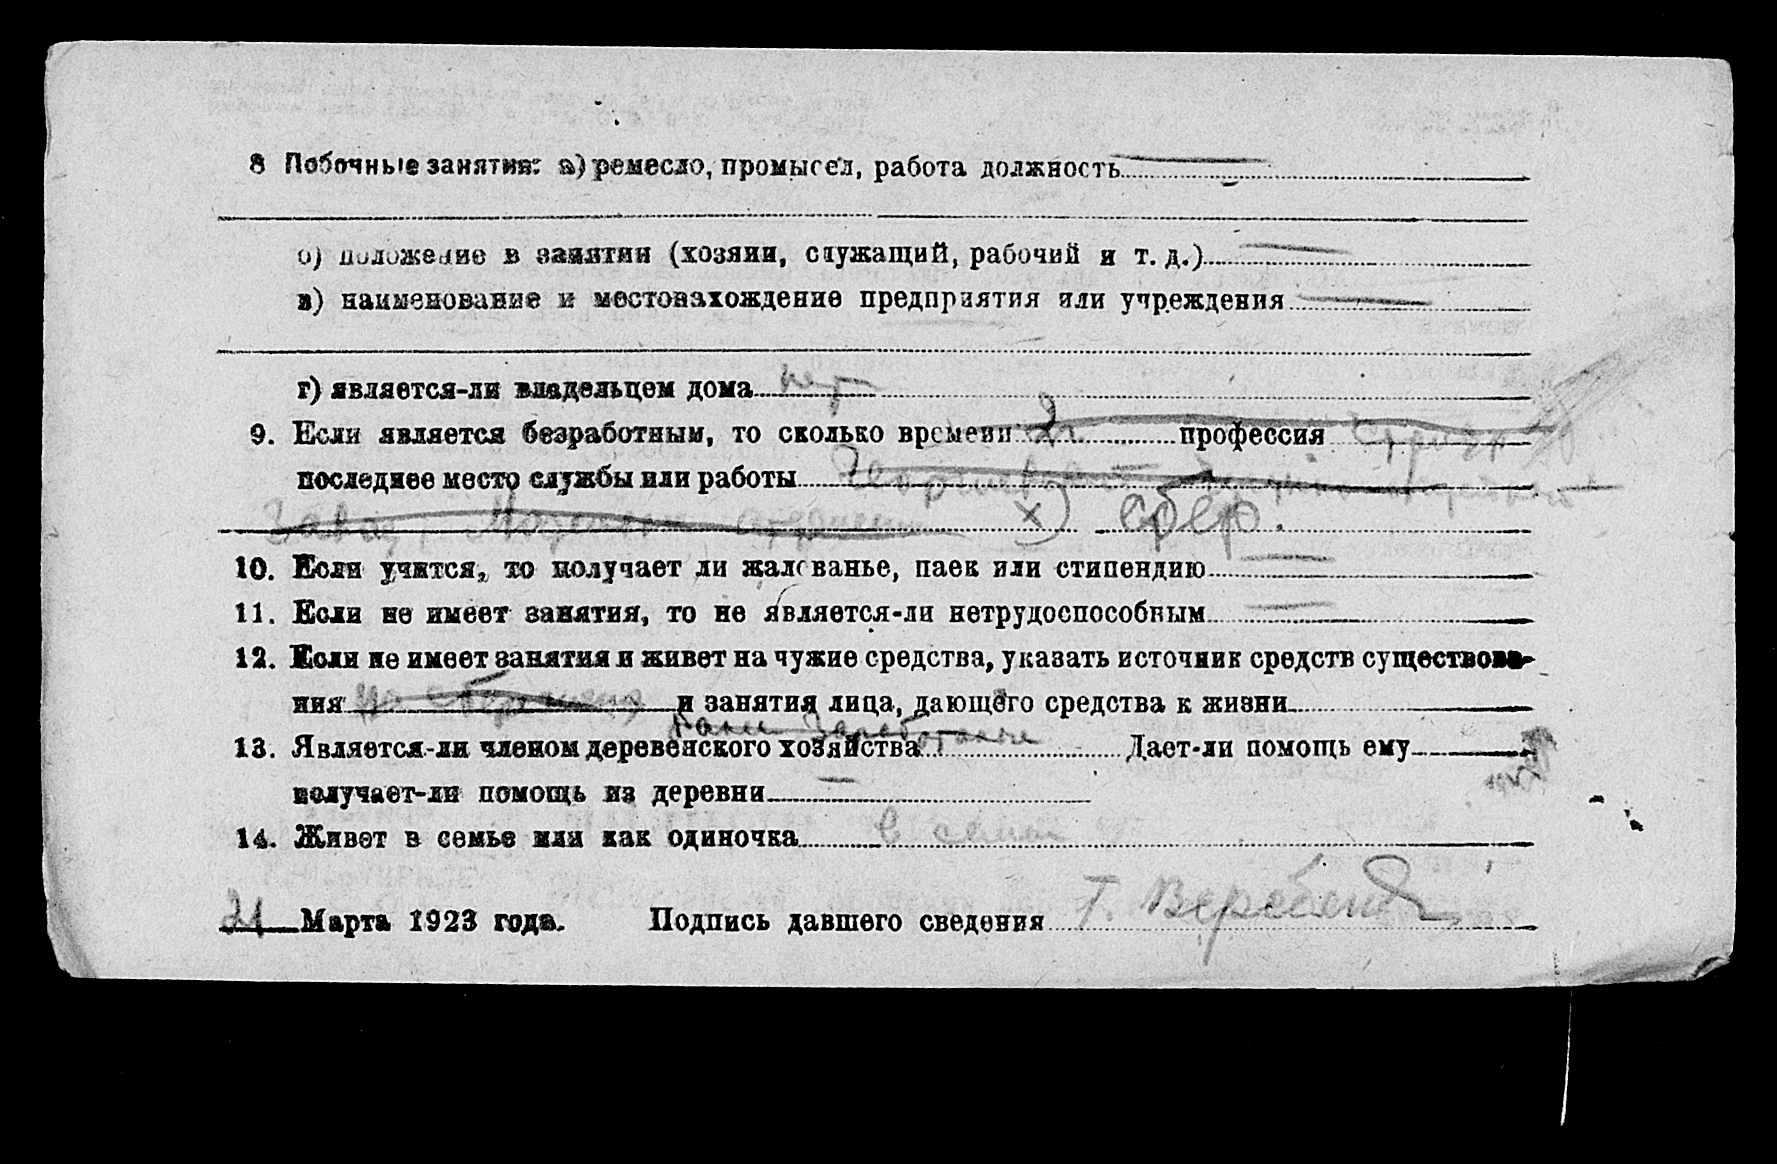 8 Побочные занятия: а) ремесло, промысел, работа должность
б) положение в занятии (хозяин, служащий, рабочий и т. д.)
в) наименование и местонахождение предприятия или учреждения
г) является-ли владельцем дома нет
9. Если является безработным, то сколько времени 2 г. профессия
последнее место службы или работы
Завод, х)
10. Если учится, то получает ли жалованье, паек или стипендию
11. Если не имеет занятия, то не является-ли нетрудоспособным
12. Если не имеет занятия и живет на чужие средства, указать источник средств существова-
ния на сбережения и занятия лица, дающего средства к жизни
13. Является-ли членом деревенского хозяйства Дает-ли помощь ему
получает-ли помощь из деревни
14. Живет в семье или как одиночка в семье
21 Марта 1923 года. Подпись давшего сведения Т.